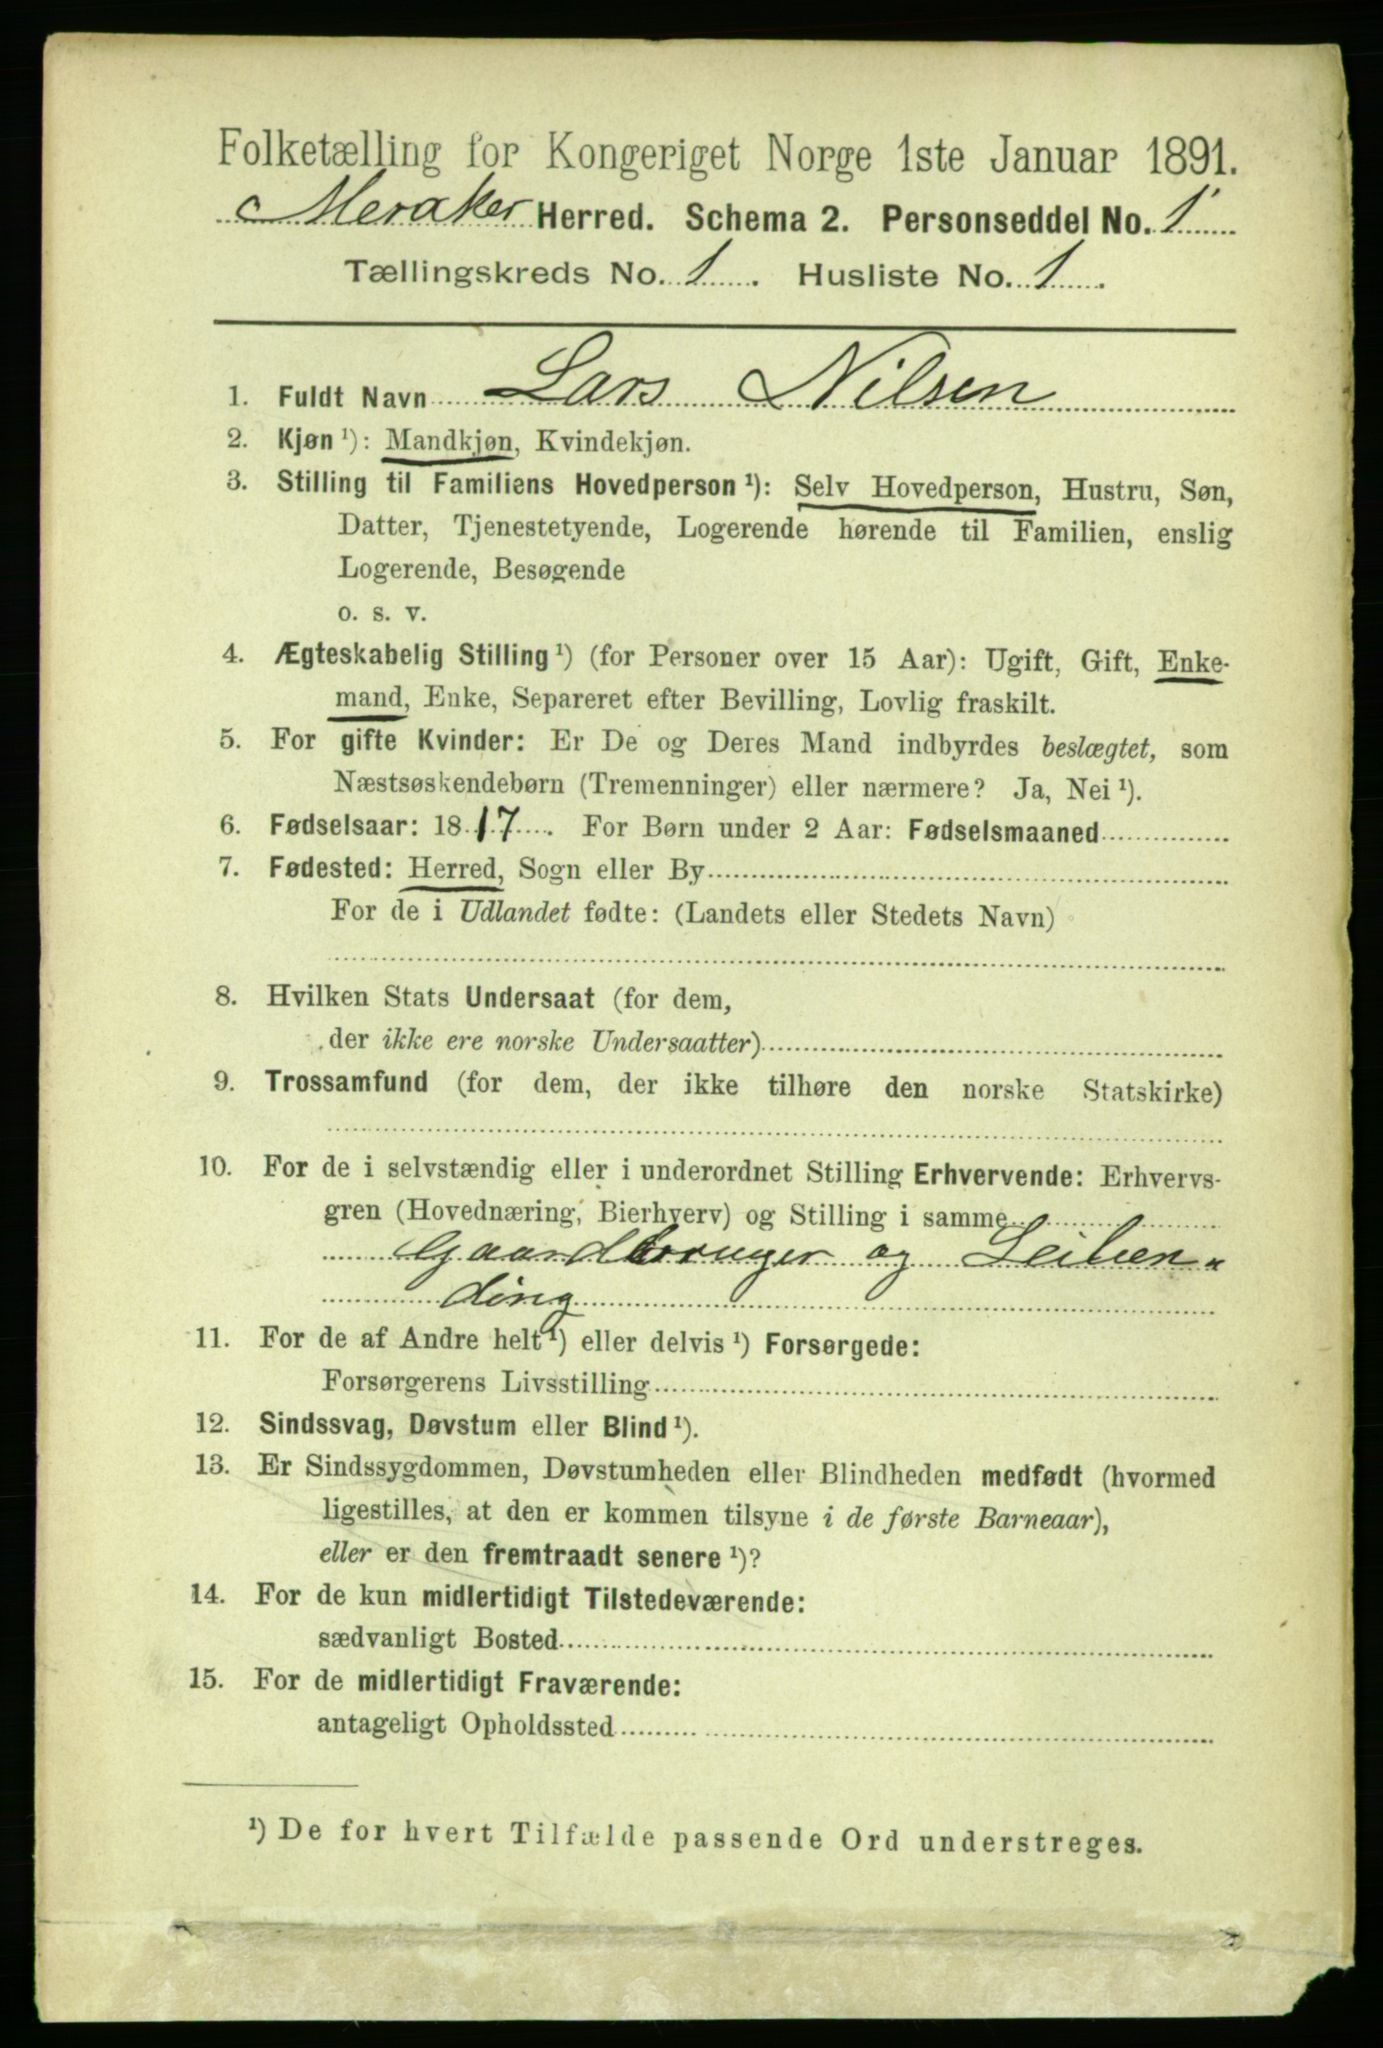 Folketælling for Kongeriget Norge 1ste Januar 1891.
Meraker Herred. Schema 2. Personseddel No. 1
Tællingskreds No. 1. Husliste No. 1.
1. Fuldt Navn Lars Nilsen
2. Kjøn ¹): Mandkjøn, Kvindekjøn.
3. Stilling til Familiens Hovedperson ¹): Selv Hovedperson, Hustru, Søn,
Datter, Tjenestetyende, Logerende hørende til Familien, enslig
Logerende, Besøgende
o. s. v.
4. Ægteskabelig Stilling ¹) (for Personer over 15 Aar): Ugift, Gift, Enke-
mand, Enke, Separeret efter Bevilling, Lovlig fraskilt.
5. For gifte Kvinder: Er De og Deres Mand indbyrdes beslægtet, som
Næstsøskendebørn (Tremenninger) eller nærmere? Ja, Nei ¹).
6. Fødselsaar: 1817. For Børn under 2 Aar: Fødselsmaaned
7. Fødested: Herred, Sogn eller By
For de i Udlandet fødte: (Landets eller Stedets Navn)
8. Hvilken Stats Undersaat (for dem,
der ikke ere norske Undersaatter)
9. Trossamfund (for dem, der ikke tilhøre den norske Statskirke)
10. For de i selvstændig eller i underordnet Stilling Erhvervende: Erhvervs-
gren (Hovednæring, Bierhverv) og Stilling i samme
Gaardbruger og Leilen-
ding
11. For de af Andre helt ¹) eller delvis ¹) Forsørgede:
Forsørgerens Livsstilling
12. Sindssvag, Døvstum eller Blind ¹).
13. Er Sindssygdommen, Døvstumheden eller Blindheden medfødt (hvormed
ligestilles, at den er kommen tilsyne i de første Barneaar),
eller er den fremtraadt senere ¹)?
14. For de kun midlertidigt Tilstedeværende:
sædvanligt Bosted
15. For de midlertidigt Fraværende:
antageligt Opholdssted
¹) De for hvert Tilfælde passende Ord understreges.